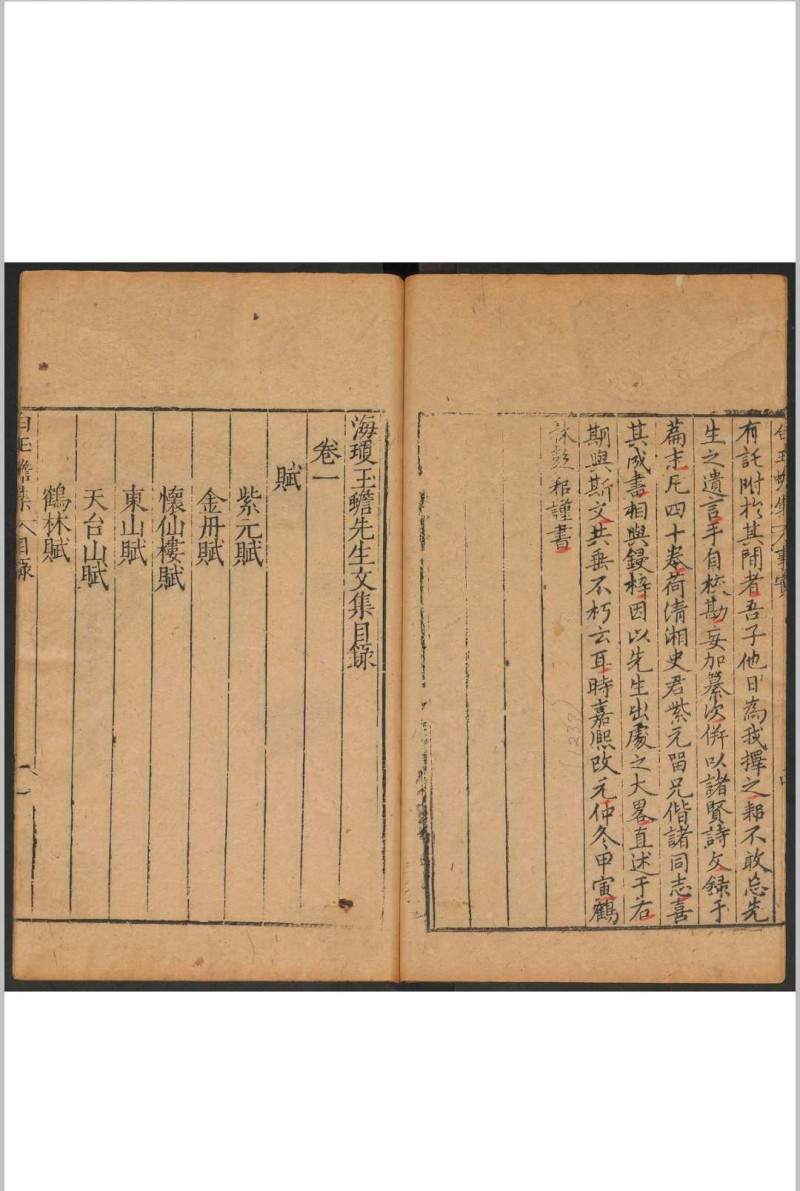 白玉蟾集 事實
有託附於其間者吾子他日為我擇之耜不敢忘先
生之遺言手自校勘妄加纂次併以諸賢詩文錄于
篇末凡四十卷荷清湘史君紫元留兄偕諸同志喜
其成書相與鋟梓因以先生出處之大畧直述于右
期與斯文共垂不朽云耳時嘉熙改元仲冬甲寅鶴
林彭耜謹書
(239)
海瓊玉蟾先生文集目錄
卷一
賦
紫元賦
金丹賦
懷仙樓賦
東山賦
天台山賦
鶴林賦
白玉蟾集 目錄 一